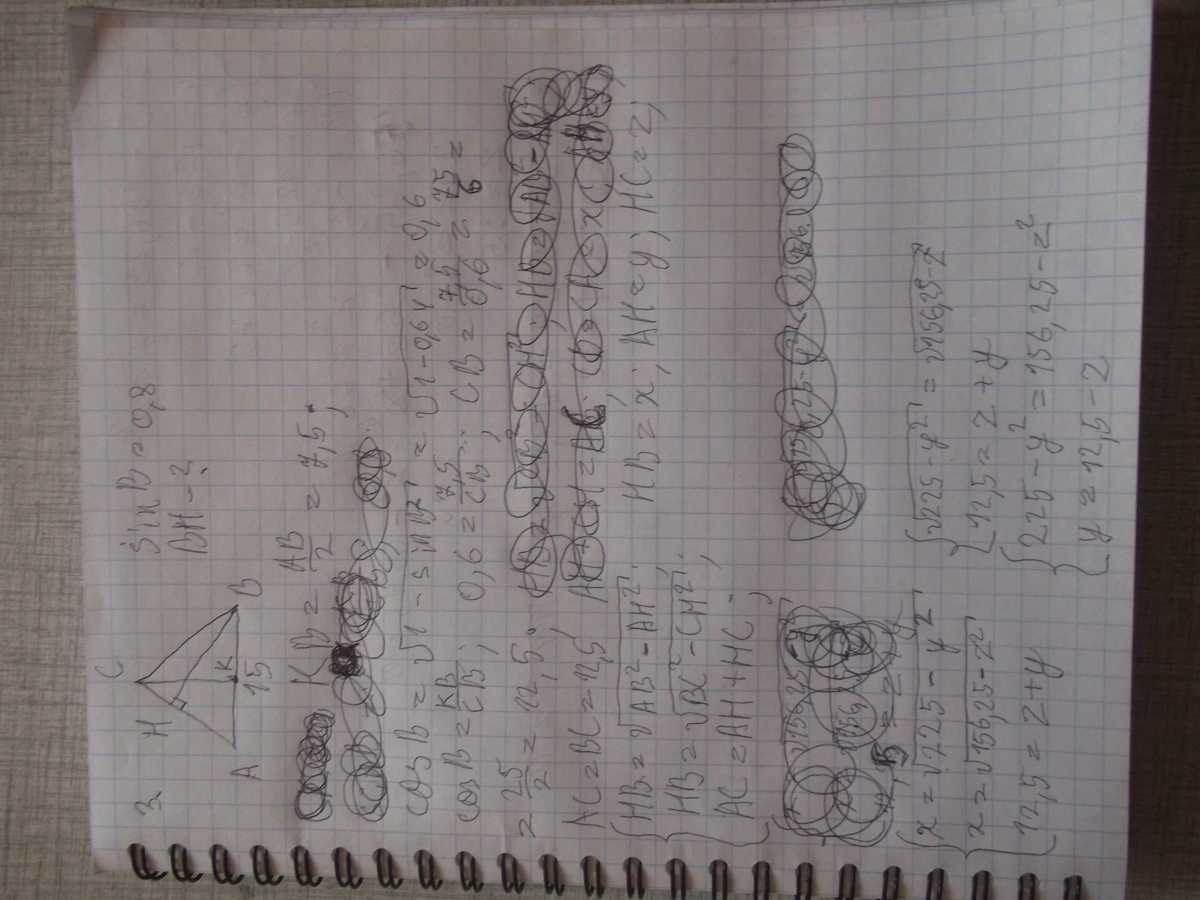 3
C
H
K
A
15
B
sin B = 0,8
BH - ?
KB = AB/2 = 7,5;
cos B = √1 - sin B² = √1 - 0,64 = 0,6
cos B = KB/CB; 0,6 = 7,5/CB; CB = 7,5/0,6 = 75/6 =
= 25/2 = 12,5;
AC = BC = 12,5
{ HB = √AB² - AH²; HB = x; AH = y; HC = z;
HB = √BC² - CH²;
AC = AH + HC;
{ x = √225 - y²
x = √156,25 - z²
12,5 = z + y
{ √225 - y² = √156,25 - z
12,5 = z + y
{ 225 - y² = 156,25 - z²
y = 12,5 - z